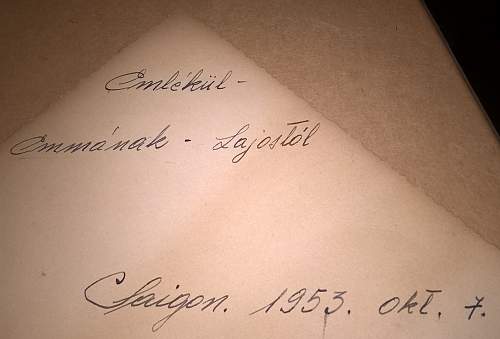 Emlékül -
Emmának - Lajostól
Saigon. 1953. okt. 7.